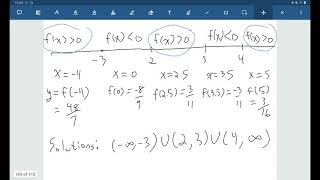 f(x)>0 f(x)<0 f(x)>0 f(x)<0 f(x)>0
-3 2 3 4
x=-4 x=0 x=2.5 x=3.5 x=5
y=f(-4) f(0)=-8/9 f(2.5)=3/11 f(3.5)=-3/11 f(5)=3/16
=48/7
Solutions: (-∞,-3)∪(2,3)∪(4,∞)
103 of 112